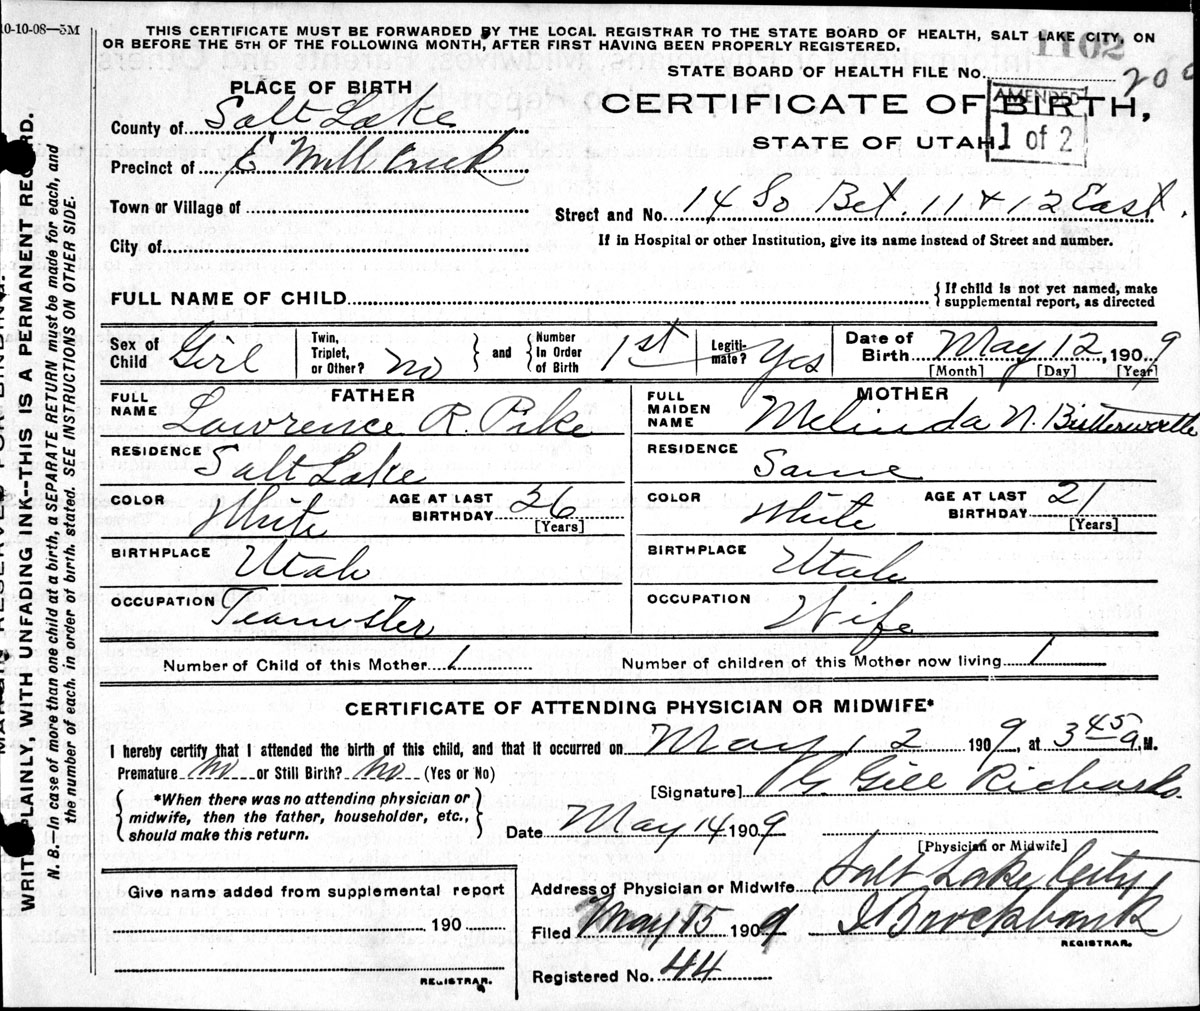 10-10-08—5M
THIS CERTIFICATE MUST BE FORWARDED BY THE LOCAL REGISTRAR TO THE STATE BOARD OF HEALTH, SALT LAKE CITY, ON
OR BEFORE THE 5TH OF THE FOLLOWING MONTH, AFTER FIRST HAVING BEEN PROPERLY REGISTERED.
1102
STATE BOARD OF HEALTH FILE No.
PLACE OF BIRTH
CERTIFICATE OF BIRTH,
AMENDED
County of Salt Lake
STATE OF UTAH
1 of 2
Precinct of E Mill Creek
Town or Village of
Street and No. 14 So Bet. 11 & 12 East.
City of
If in Hospital or other Institution, give its name instead of Street and number.
FULL NAME OF CHILD
{ If child is not yet named, make
supplemental report, as directed
Sex of Child Girl
Twin, Triplet, or Other? no } and { Number In Order of Birth 1st
Legiti-mate? Yes
Date of Birth May 12, 1909
[Month] [Day] [Year]
FATHER
MOTHER
FULL NAME Lawrence R. Pike
FULL MAIDEN NAME Melinda N. Butterworth
RESIDENCE Salt Lake
RESIDENCE Same
COLOR White AGE AT LAST BIRTHDAY 26 [Years]
COLOR White AGE AT LAST BIRTHDAY 21 [Years]
BIRTHPLACE Utah
BIRTHPLACE Utah
OCCUPATION Teamster
OCCUPATION Wife
Number of Child of this Mother 1
Number of children of this Mother now living 1
CERTIFICATE OF ATTENDING PHYSICIAN OR MIDWIFE*
I hereby certify that I attended the birth of this child, and that it occurred on May 12 1909, at 3 45 a M.
Premature no or Still Birth? no (Yes or No)
[Signature] G. Gill Richards
{ *When there was no attending physician or
midwife, then the father, householder, etc.,
should make this return. }
Date May 14 1909
[Physician or Midwife]
Address of Physician or Midwife Salt Lake City
Give name added from supplemental report
190
REGISTRAR.
Filed May 15 1909 J Brockbank
REGISTRAR.
Registered No. 44
WRITE PLAINLY, WITH UNFADING INK--THIS IS A PERMANENT RECORD.
N. B.—In case of more than one child at a birth, a SEPARATE RETURN must be made for each, and
the number of each, in order of birth, stated. SEE INSTRUCTIONS ON OTHER SIDE.